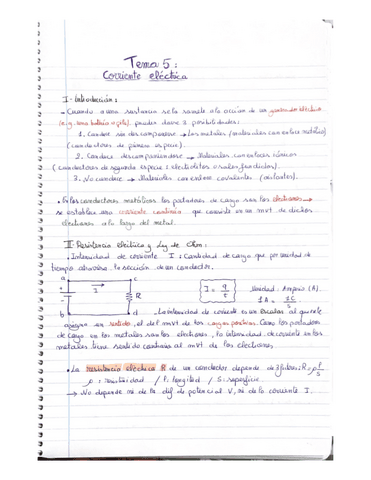 Tema 5:
Corriente eléctrica
I - Introducción:
- Cuando a una sustancia se la somete a la acción de un generador eléctrico
(e.g. una batería o pila), pueden darse 3 posibilidades:
1. Conduce sin descomponerse → Los metales (materiales con enlace metálico)
(conductores de primera especie).
2. Conduce descomponiendose → Materiales con enlaces iónicos
(conductores de segunda especie: electrolitos o sales fundidas).
3. No conduce → Materiales con enlace covalente (aislantes).
• En los conductores metálicos los portadores de carga son los electrones →
se establece una corriente continua que consiste en un mvt de dichos
electrones a lo largo del metal.
II - Resistencia eléctrica y Ley de Ohm:
• Intensidad de corriente I: Cantidad de carga que por unidad de
tiempo atraviesa la sección de un conductor.
a c
I
R
b d
I = q/t
Unidad: Amperio (A).
1A = 1C/s
- La intensidad de corriente es un escalar al que se le
asigna un sentido, el del mvt de las cargas positivas. Como los portadores
de carga en los metales son los electrones, la intensidad de corriente en los
metales tiene sentido contrario al mvt de los electrones.
• La resistencia eléctrica R de un conductor depende de 3 factores: R = ρ l/S
ρ: resistividad / l: longitud / S: superficie
→ No depende ni de la dif de potencial V, ni de la corriente I.